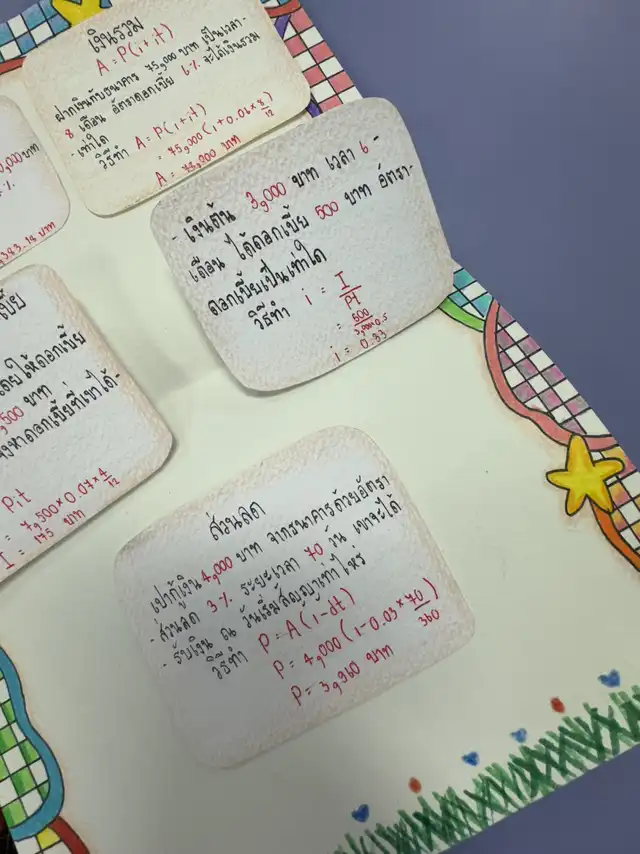 เงินรวม
A = P(1+it)
ฝากเงินกับธนาคาร 75,000 บาท เป็นเวลา-
8 เดือน อัตราดอกเบี้ย 6% จะได้เงินรวม
เท่าใด
วิธีทำ A = P(1+it)
= 75,000 (1+0.06×8/12
A = 78,000 บาท
0,000 บาท
%
383.18 บาท
- เงินต้น 3,000 บาท เวลา 6 -
เดือน ได้ดอกเบี้ย 500 บาท อัตรา-
ดอกเบี้ยเป็นเท่าใด
วิธีทำ i = I/Pt
= 500/3,000×0.5
i = 0.33
เบี้ย
โดยให้ดอกเบี้ย
,500 บาท
งหาดอกเบี้ยที่เขาได้-
Pit
= 7,500×0.07×4/12
I = 175 บาท
ส่วนลด
เปากู้เงิน 4,000 บาท จากธนาคารด้วยอัตรา
- ส่วนลด 3% ระยะเวลา 70 วัน เขาจะได้
- รับเงิน ณ วันเริ่มสัญญาเท่าไหร่
วิธีทำ P = A(1-dt)
P = 4,000 (1-0.03×70/360)
P = 3,960 บาท